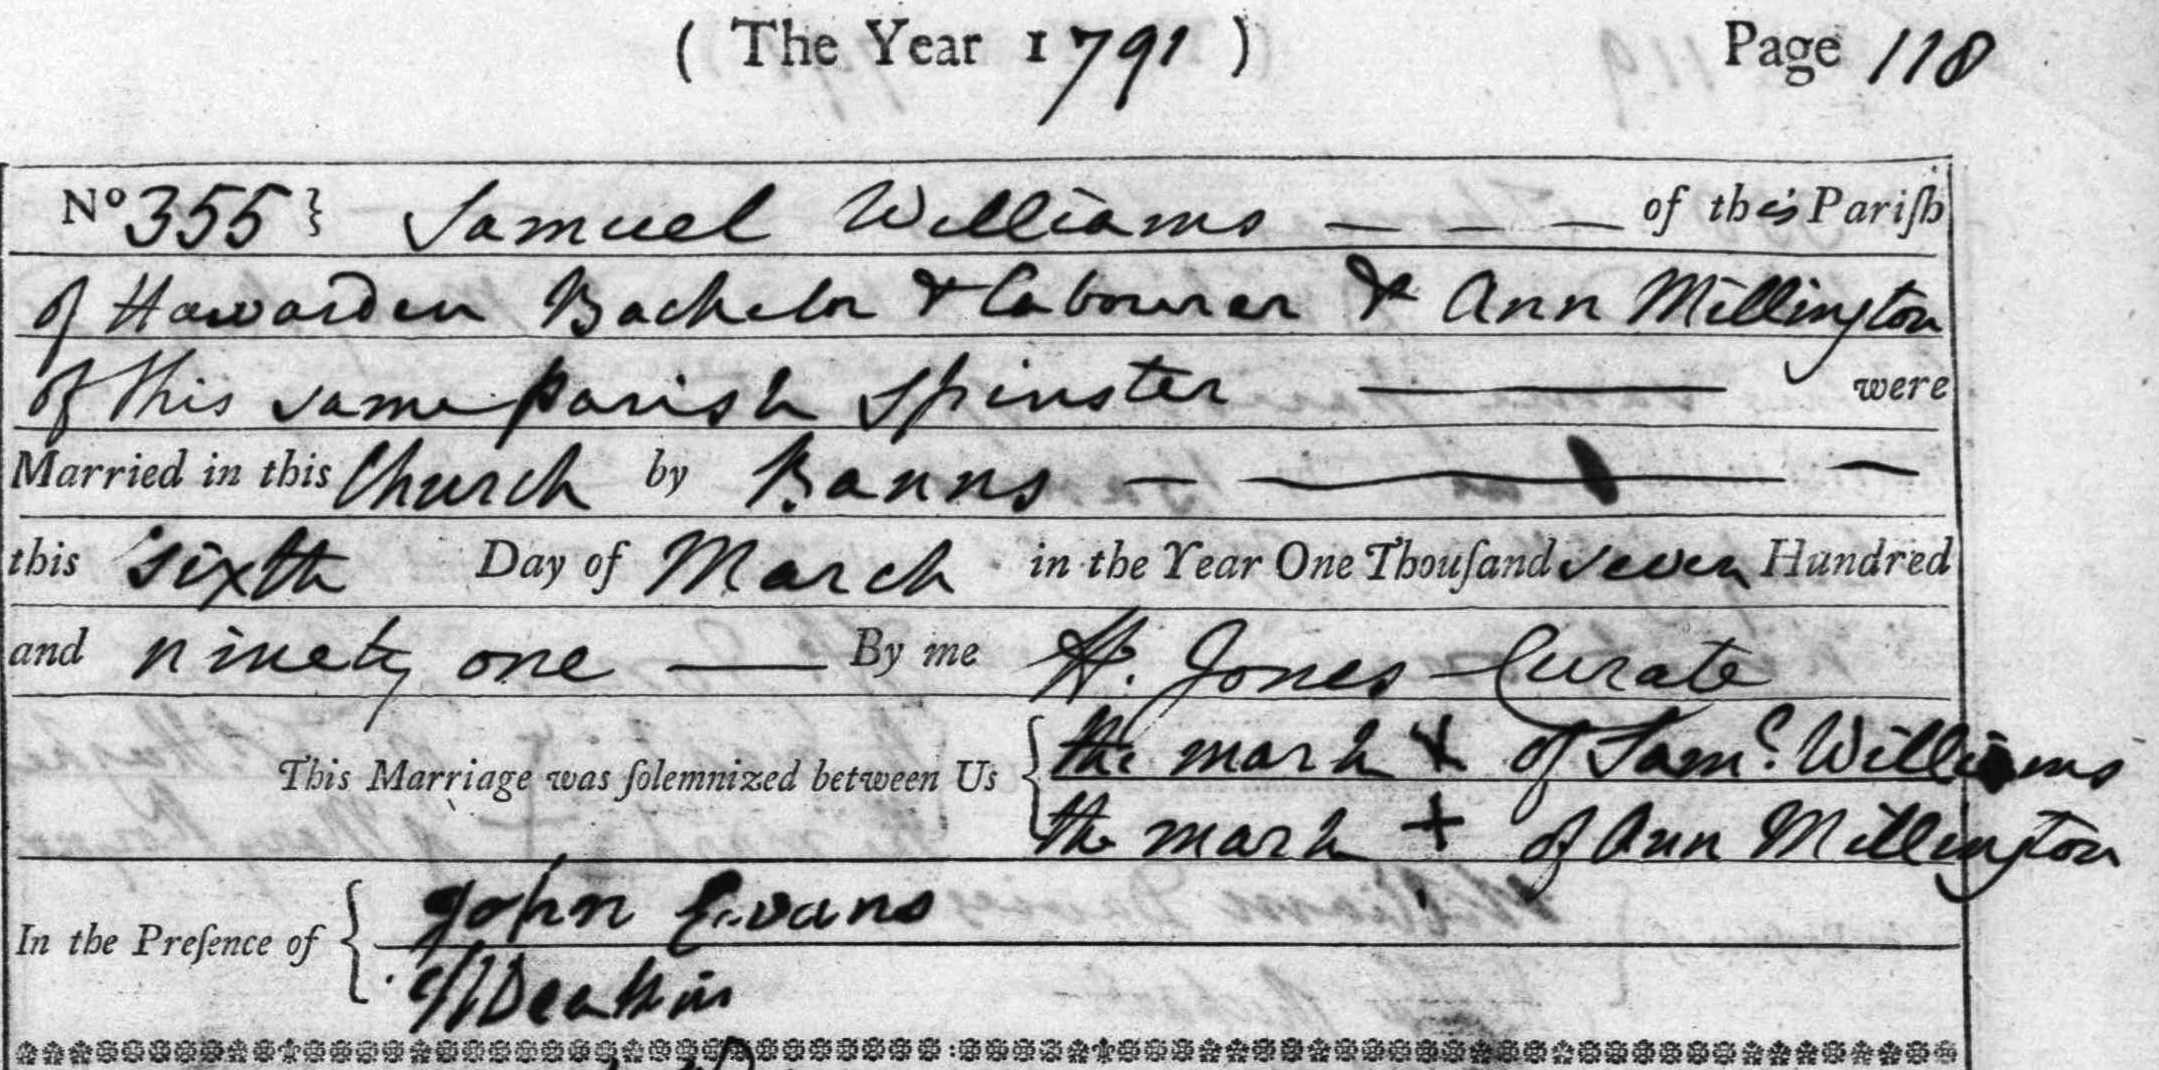 ( The Year 1791 ) Page 118
No 355 } Samuel Williams — — — of this Pariſh
of Hawarden Bachelor & Labourer & Ann Millington
of this same parish Spinster —— were
Married in this Church by Banns — —— —
this sixth Day of March in the Year One Thouſand seven Hundred
and ninety one —— By me H. Jones Curate
This Marriage was ſolemnized between Us { the mark + of Saml. Williams
the mark + of Ann Millington
In the Preſence of { John Evans
Deakin